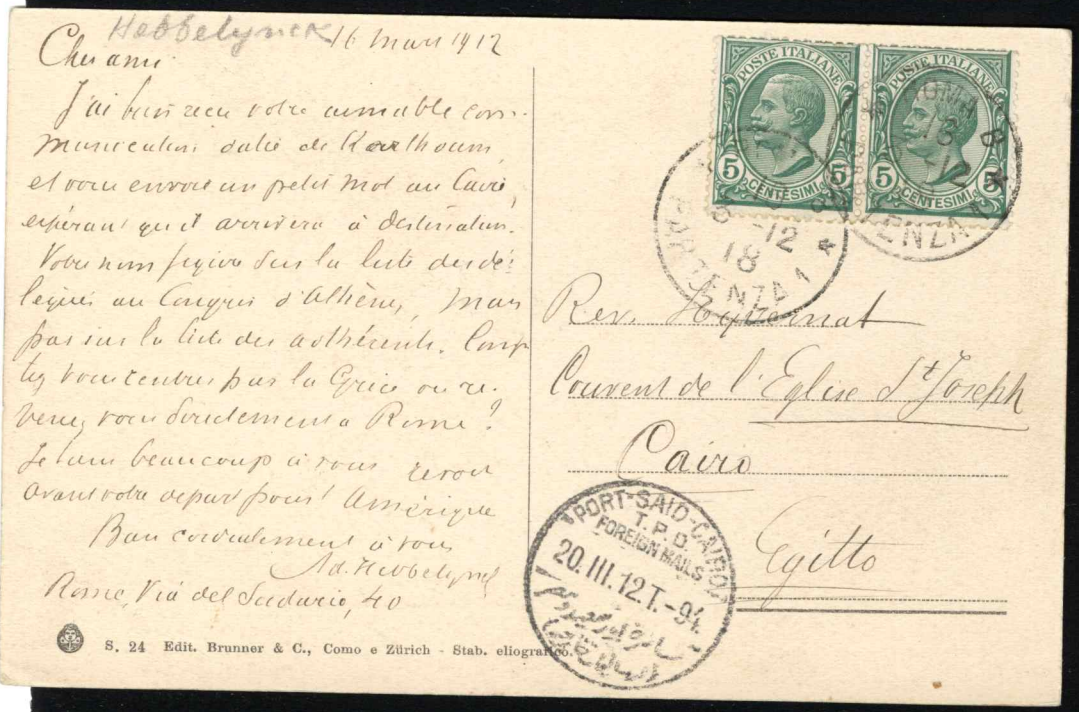 Hebbelynck
16 mars 1912
Cher ami
J'ai bien reçu votre aimable com-
munication datée de Karthoum,
et vous envoie un petit mot au Caire,
espérant qu'il arrivera à destination.
Votre nom figure sur la liste des dé-
légués au Congrès d'Athènes, mais
pas sur la liste des adhérents. Comp-
tez vous rentrer par la Grèce ou re-
venez vous directement à Rome?
Je tiens beaucoup à vous revoir
avant votre départ pour l'Amérique
Bien cordialement à vous
Ad. Hebbelynck
Rome, Via del Sudario, 40
S. 24 Edit. Brunner & C., Como e Zürich - Stab. eliografico.
POSTE ITALIANE
5 CENTESIMI 5
POSTE ITALIANE
5 CENTESIMI 5
ROMA
-12
18
PARTENZA 1
Rev. Hyvernat
Couvent de l'Eglise St Joseph
Cairo
Egitto
PORT-SAID-CAIRO
T.P.O.
FOREIGN MAILS
20.III.12.T.-94